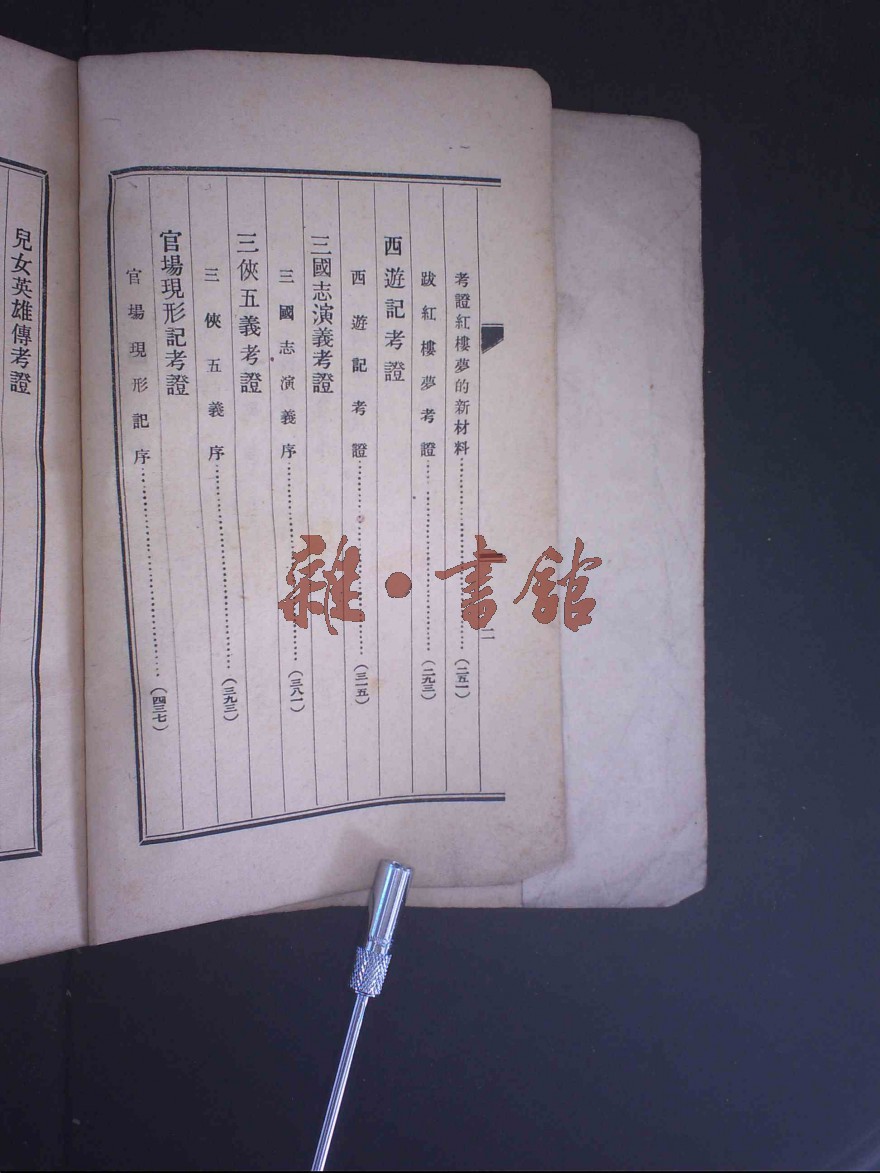 考證紅樓夢的新材料……(二五一)
跋紅樓夢考證……(二九三)
西遊記考證
西遊記考證……(三一五)
三國志演義考證
三國志演義序……(三八一)
三俠五義考證
三俠五義序……(三九三)
官場現形記考證
官場現形記序……(四三七)
二
兒女英雄傳考證
雜·書館